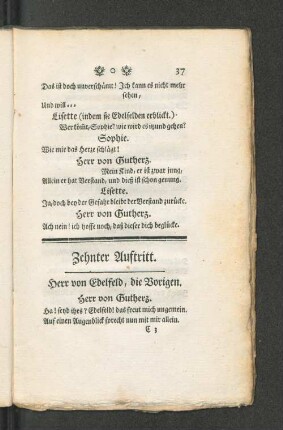 37
Das ist doch unverschämt! Ich kann es nicht mehr
sehen,
Und will...
Lisette (indem sie Edelfelden erblickt.)
Wer kömt, Sophie? wie wird es itzund gehen?
Sophie.
Wie mir das Herze schlägt!
Herr von Gutherz.
Mein Kind, er ist zwar jung,
Allein er hat Verstand, und dieß ist schon genung.
Lisette.
Ja, doch bey der Gefahr bleibt der Verstand zurücke.
Herr von Gutherz.
Ach nein! ich hoffe noch, daß dieser dich beglücke.
Zehnter Auftritt.
Herr von Edelfeld, die Vorigen.
Herr von Gutherz.
Ha! seyd ihrs? Edelfeld! das freut mich ungemein.
Auf einen Augenblick sprecht nun mit mir allein.
C 3